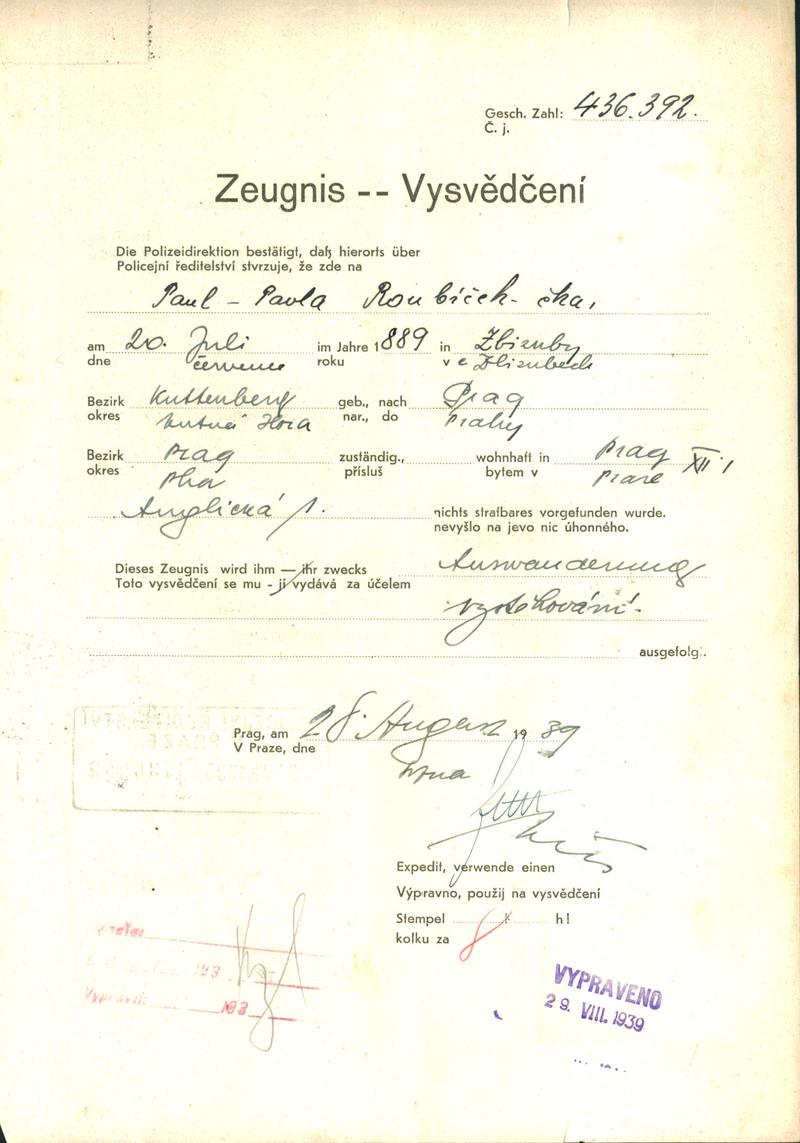 Gesch. Zahl: 436.392.
Č. j.
Zeugnis -- Vysvědčení
Die Polizeidirektion bestätigt, daß hierorts über
Policejní ředitelství stvrzuje, že zde na
Paul - Pavla Roubíček - čka,
am 20. Juli im Jahre 1889 in Zbizuby
dne července roku v e Zbizubech
Bezirk Kuttenberg geb., nach Prag
okres Kutná Hora nar., do Prahy
Bezirk Prag zuständig., wohnhaft in Prag XII
okres Pha přísluš bytem v Praze
Anglická 1. nichts strafbares vorgefunden wurde.
nevyšlo na jevo nic úhonného.
Dieses Zeugnis wird ihm — ihr zwecks Auswanderung
Toto vysvědčení se mu - jí vydává za účelem vystěhování.
ausgefolg.
Prag, am 28. August 1939
V Praze, dne srpna
Expedit, verwende einen
Výpravno, použij na vysvědčení
Stempel 8 h!
kolku za
193
Vypravil:
193
VYPRAVENO
29. VIII. 1939